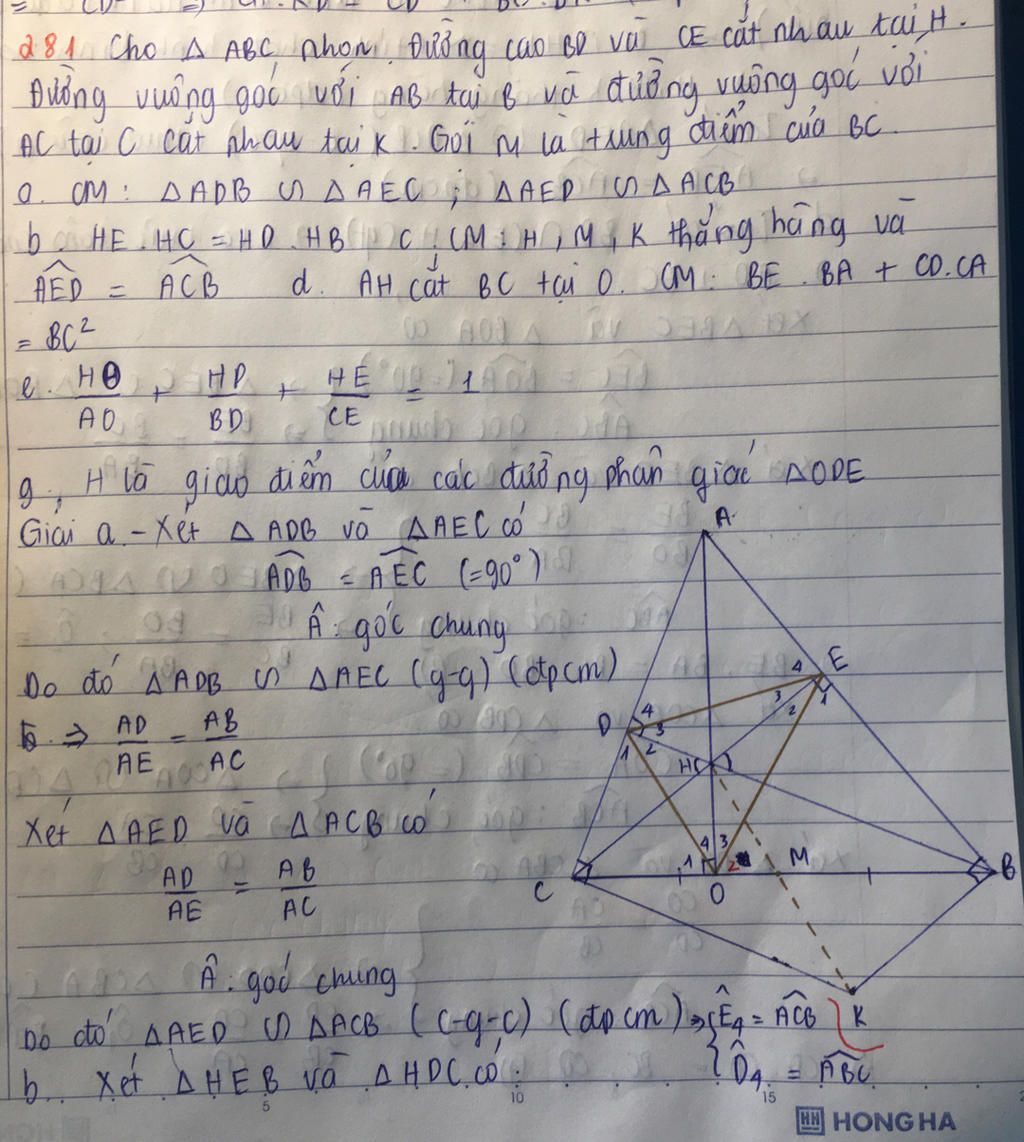 281 Cho △ ABC nhọn. Đường cao BD và CE cắt nhau tại H.
Đường vuông góc với AB tại B và đường vuông góc với
AC tại C cắt nhau tại K. Gọi M là trung điểm của BC.
a. CM: △ADB ∽ △AEC ; △AED ∽ △ACB
b. HE.HC = HD.HB c. CM: H, M, K thẳng hàng và
AED = ACB d. AH cắt BC tại O. CM: BE.BA + CD.CA
= BC²
e. HO/AO + HD/BD + HE/CE = 1
g. H là giao điểm của các đường phân giác △ODE
Giải a.- Xét △ADB và △AEC có
ADB = AEC (=90°)
Â: góc chung
Do đó △ADB ∽ △AEC (g-g) (đpcm)
⇒ AD/AE = AB/AC
Xét △AED và △ACB có
AD/AE = AB/AC
Â: góc chung
Do đó △AED ∽ △ACB (c-g-c) (đpcm) ⇒ { Ê4 = ACB
D̂4 = ABC
b. Xét △HEB và △HDC có:
A
E
4
3
2
1
D
4
3
2
1
H
4
3
1
2
M
C
O
B
K
5
10
15
HH HONG HA